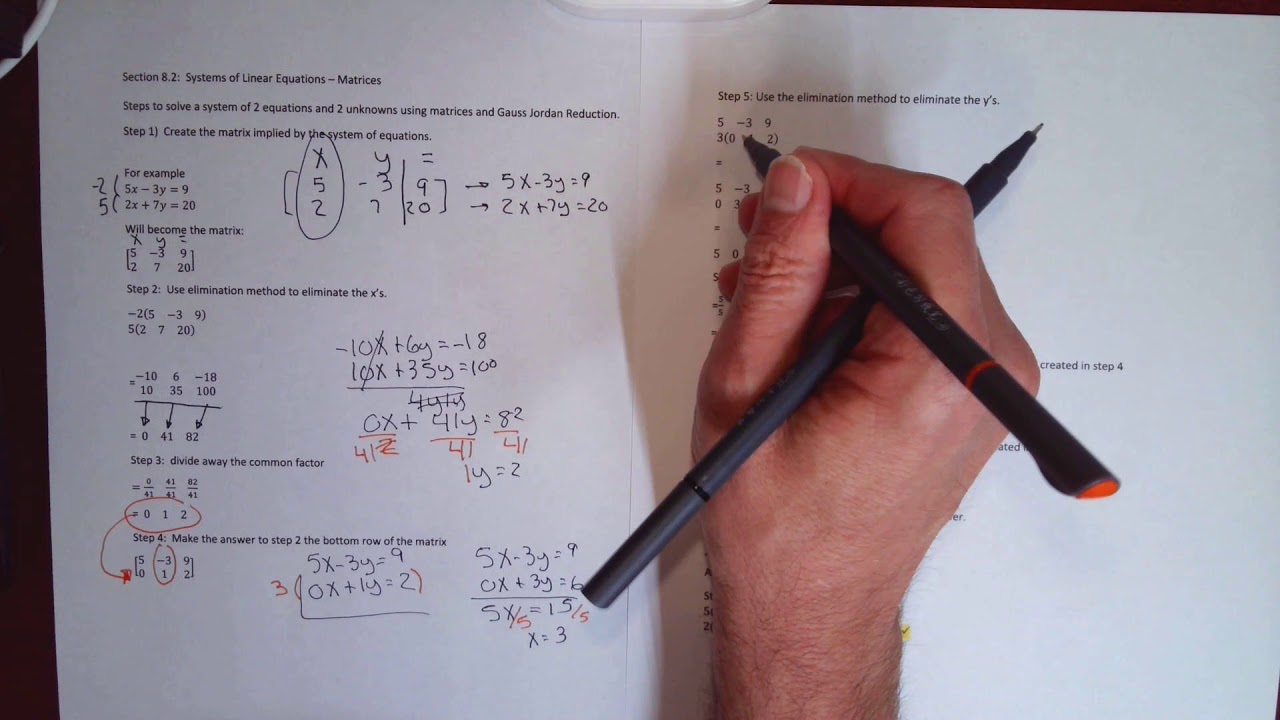 Section 8.2: Systems of Linear Equations – Matrices
Steps to solve a system of 2 equations and 2 unknowns using matrices and Gauss Jordan Reduction.
Step 1) Create the matrix implied by the system of equations.
x y =
5 -3 9 → 5x-3y=9
2 7 20 → 2x+7y=20
For example
-2( 5x − 3y = 9
5( 2x + 7y = 20
Will become the matrix:
x y =
[5 −3 9]
[2 7 20]
Step 2: Use elimination method to eliminate the x's.
−2(5 −3 9)
5(2 7 20)
= −10 6 −18
10 35 100
= 0 41 82
-10x+6y=-18
10x+35y=100
0x+ 41y=82
41 41 41
1y=2
Step 3: divide away the common factor
= 0/41 41/41 82/41
= 0 1 2
Step 4: Make the answer to step 2 the bottom row of the matrix
[5 −3 9]
[0 1 2]
5x-3y=9
3(0x+1y=2)
5x-3y=9
0x+3y=6
5x/5=15/5
x=3
Step 5: Use the elimination method to eliminate the y's.
5 −3 9
3(0 2)
=
5 −3
0 3
=
5 0
5
=5/5
=
created in step 4
5(
2(